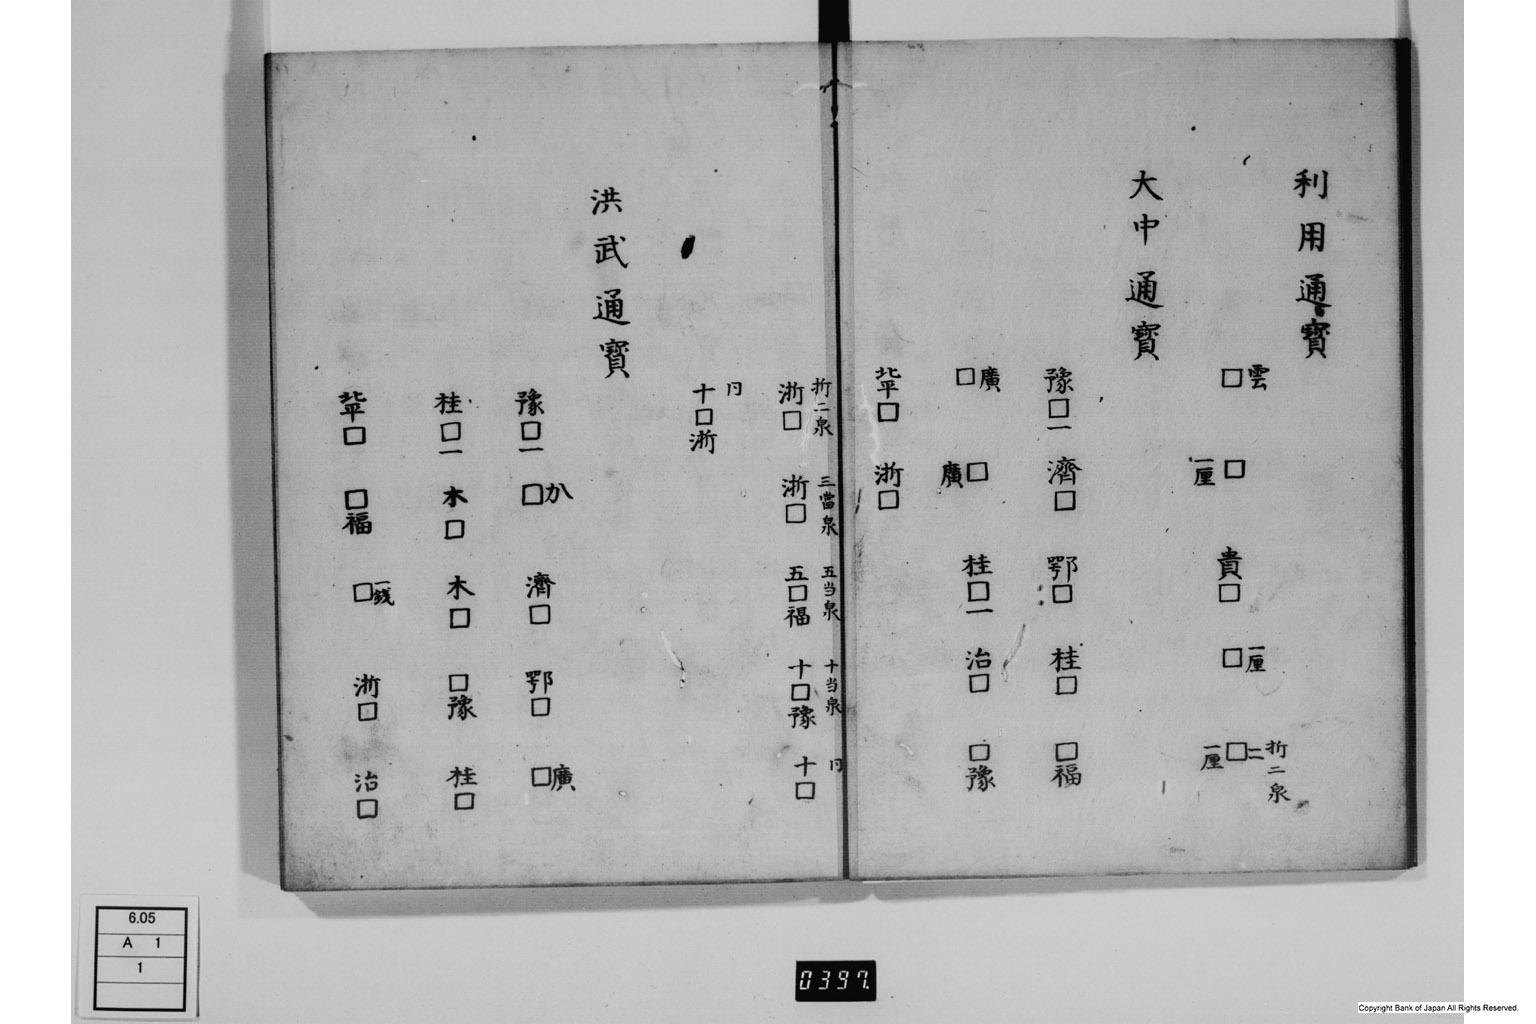 利用通寳
雲□
□一厘
貴□
□一厘
折二泉
二□一厘
大中通寳
豫□一
濟□
鄂□
桂□
□福
□廣
□廣
桂□一
治□
□豫
北平□
浙□
折二泉
浙□
三當泉
浙□
五当泉
五□福
十当泉
十□豫
十□
十□浙
洪武通寳
豫□一
□
濟□
鄂□
□廣
桂□一
木□
木□
□豫
桂□
北平□
□福
□一銭
浙□
治□
6.05
A 1
1
0397.
Copyright Bank of Japan All Rights Reserved.